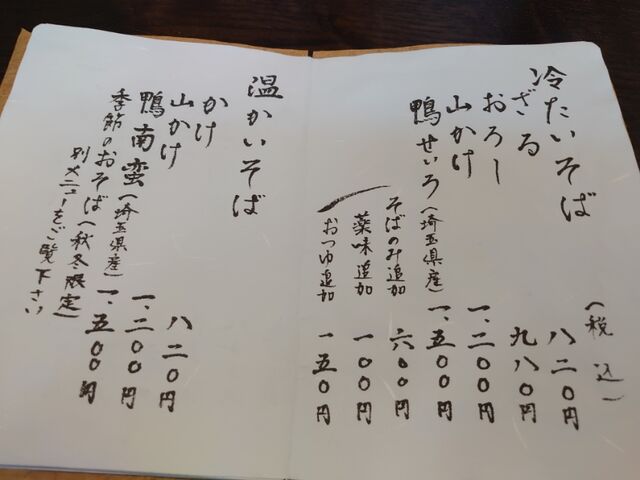 冷たいそば
(税込)
ざる 八二〇円
おろし 九八〇円
山かけ 一、二〇〇円
鴨せいろ(埼玉県産) 一、五〇〇円
そばのみ追加 六〇〇円
薬味追加 一〇〇円
おつゆ追加 一五〇円
温かいそば
かけ 八二〇円
山かけ 一、二〇〇円
鴨南蛮(埼玉県産) 一、五〇〇円
季節のおそば(秋冬限定)
別メニューをご覧下さい